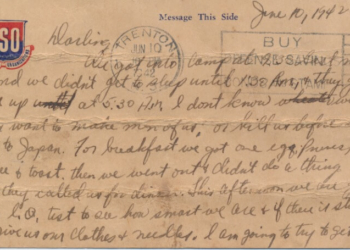 June 10, 1942
Message This Side
USO
TRENTON
JUN 10
BUY
Darling,
got into camp at
we didn't get to up until 1:30 A.M. & they
up at 5:30 A.M. I don't know
want to make men of us, or kill us before
to Japan. For breakfast we got one egg, Prunes,
& toast, then we went out & didn't do a thing
they called us for dinner. This afternoon we are
I.Q. test to see how smart we are & if there is
give us our clothes & needles. I am going to try to